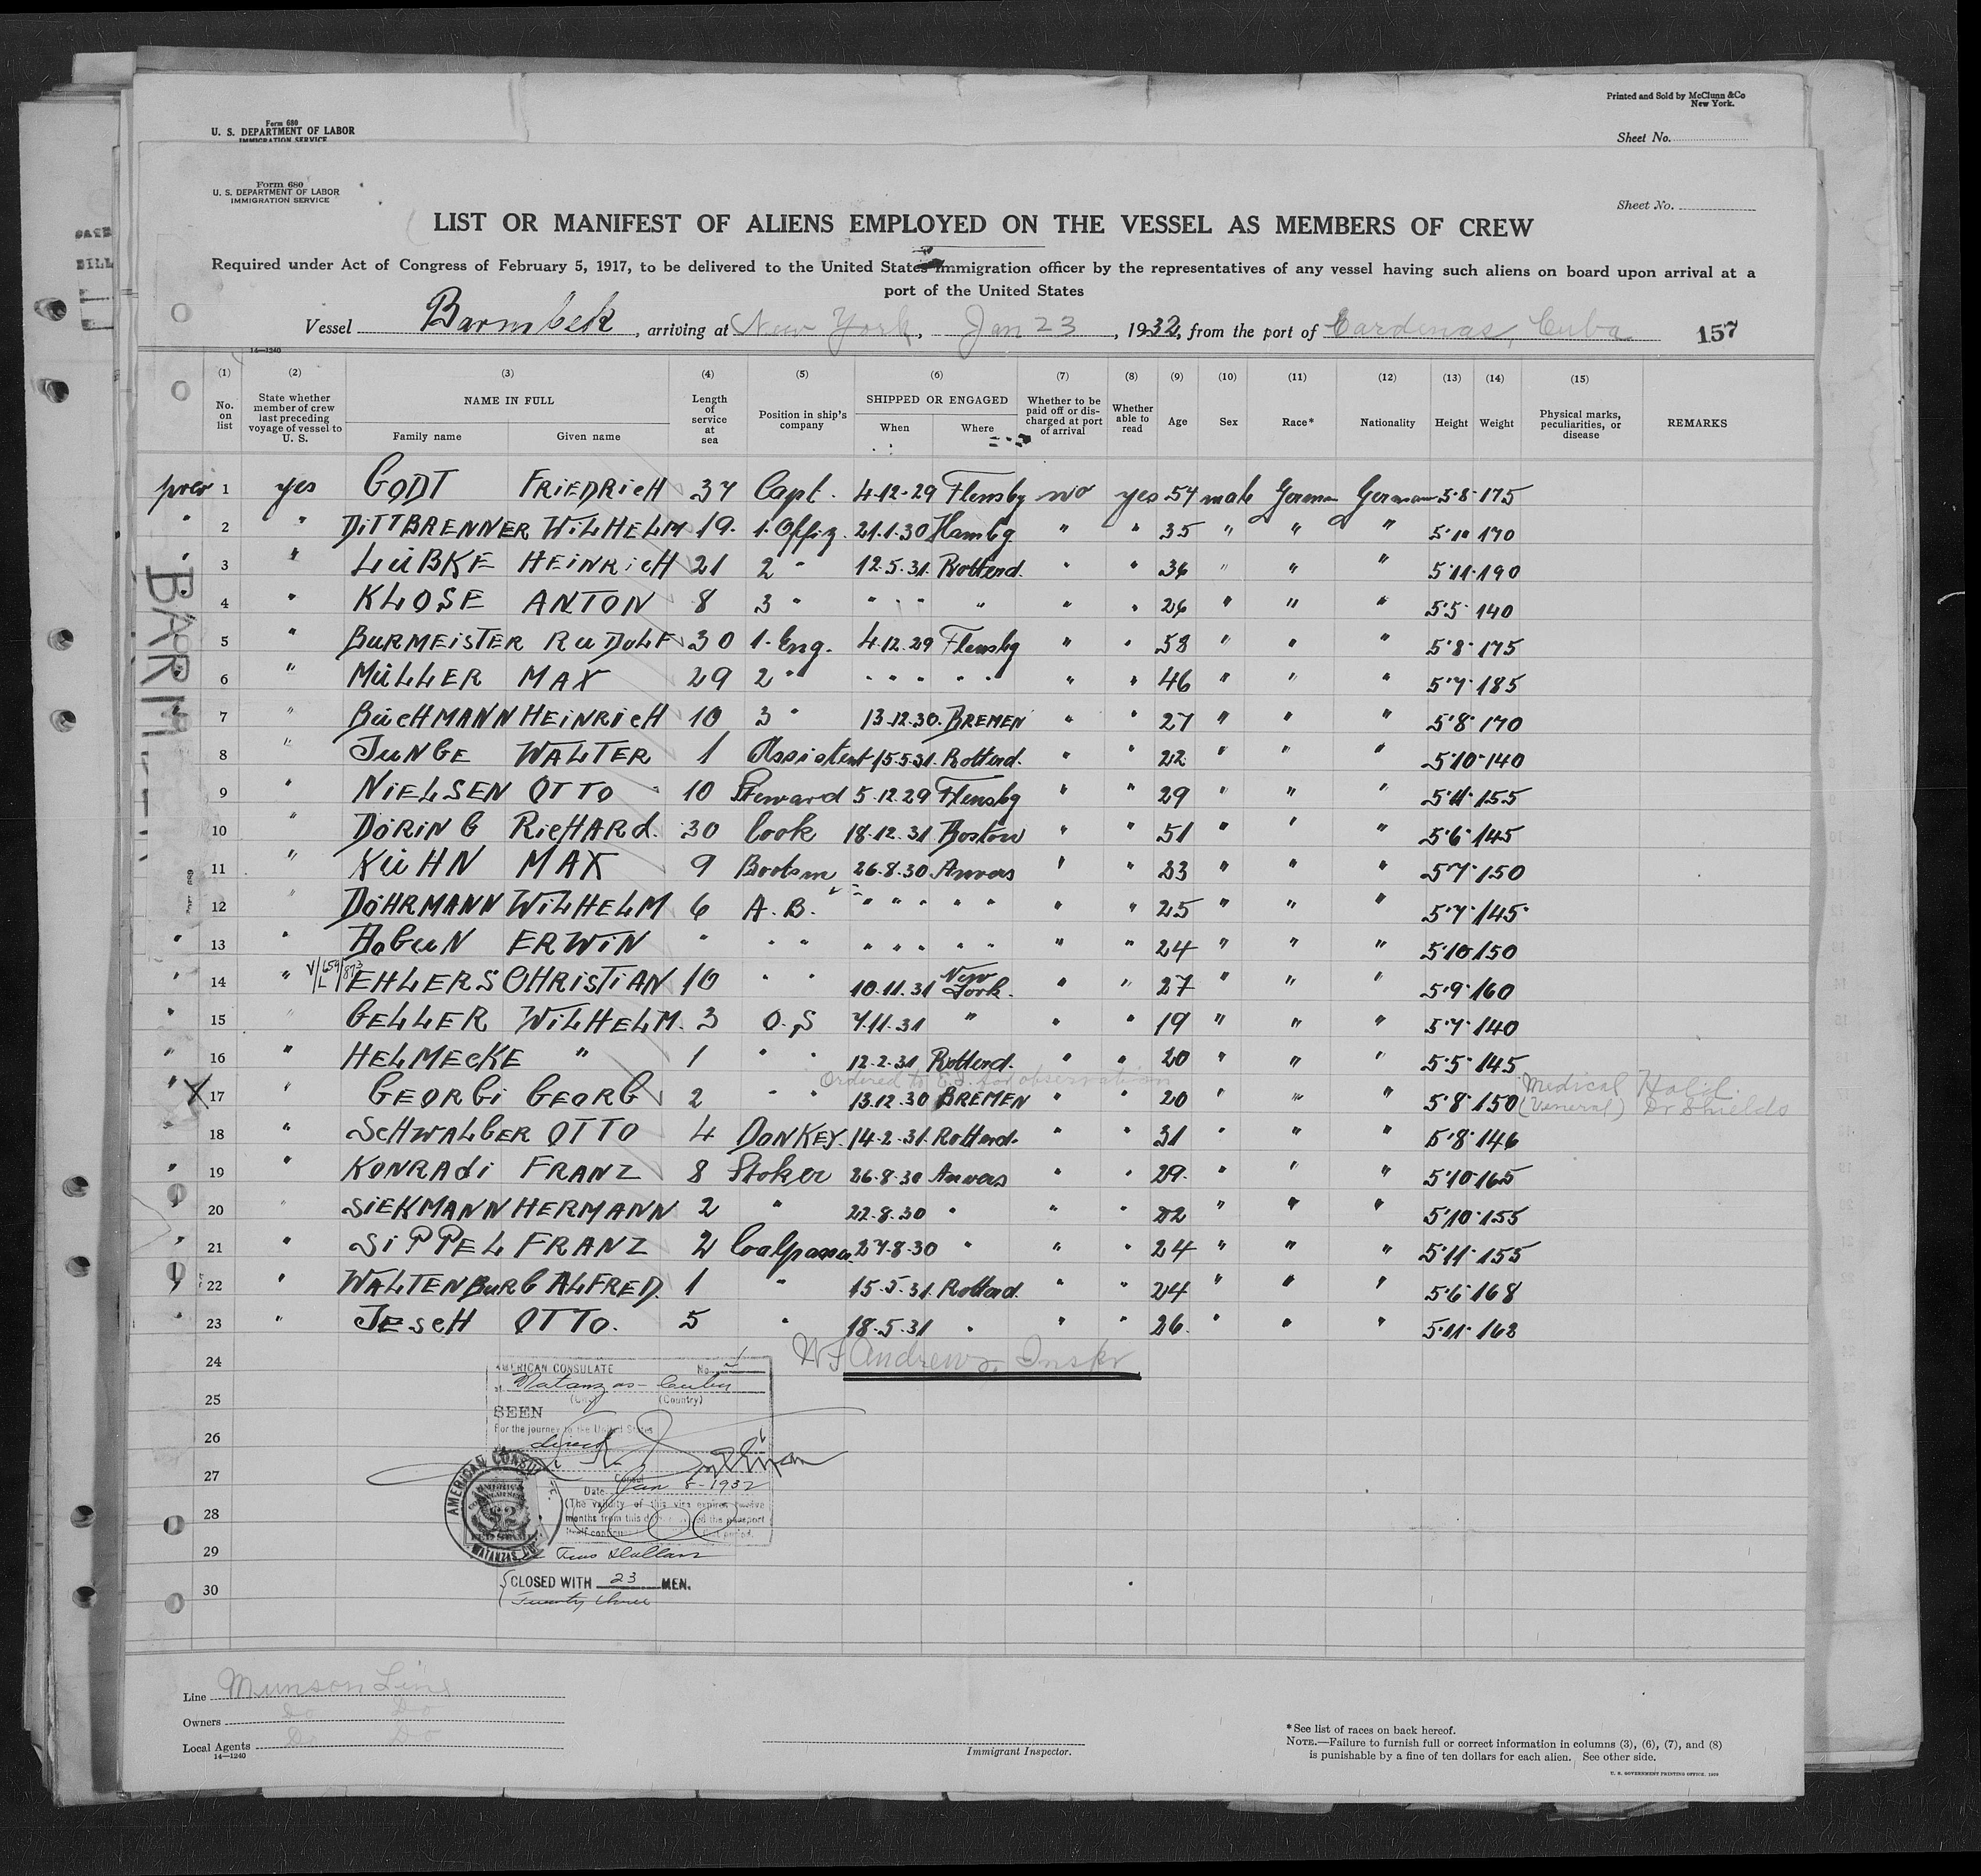 Printed and Sold by McClunn & Co
New York.
Form 680
U. S. DEPARTMENT OF LABOR
IMMIGRATION SERVICE
Sheet No.
Form 680
U. S. DEPARTMENT OF LABOR
IMMIGRATION SERVICE
Sheet No.
LIST OR MANIFEST OF ALIENS EMPLOYED ON THE VESSEL AS MEMBERS OF CREW
Required under Act of Congress of February 5, 1917, to be delivered to the United States immigration officer by the representatives of any vessel having such aliens on board upon arrival at a
port of the United States
Vessel Barmbek, arriving at New York, Jan 23, 1932, from the port of Cardenas, Cuba 157
14—1240
(1) (2) (3) (4) (5) (6) (7) (8) (9) (10) (11) (12) (13) (14) (15)
No. on list | State whether member of crew last preceding voyage of vessel to U. S. | NAME IN FULL Family name Given name | Length of service at sea | Position in ship's company | SHIPPED OR ENGAGED When Where | Whether to be paid off or discharged at port of arrival | Whether able to read | Age | Sex | Race* | Nationality | Height | Weight | Physical marks, peculiarities, or disease | REMARKS
BARM
prev 1 yes GODT FRIEDRICH 37 Capt. 4.12.29 Flensbg no yes 54 male German German 5'8" 175
" 2 " DITTBRENNER WILHELM 19 1. Offiz. 21.1.30 Hambg. " " 35 " " " 5'10 170
" 3 " LÜBKE HEINRICH 21 2 " 12.5.31 Rotterd. " " 36 " " " 5'11" 190
4 " KLOSE ANTON 8 3 " " " " " " " 26 " " " 5'5" 140
5 " BURMEISTER RUDOLF 30 1. Eng. 4.12.29 Flensbg " " 58 " " " 5'8" 175
6 " MÜLLER MAX 29 2 " " " " " " " " 46 " " " 5'7" 185
7 " BÜCHMANN HEINRICH 10 3 " 13.12.30. BREMEN " " 27 " " " 5'8" 170
8 " JUNGE WALTER 1 Assistent 15.5.31. Rotterd. " " 22 " " " 5'10" 140
9 " NIELSEN OTTO 10 Steward 5.12.29 Flensbg " " 29 " " " 5'11" 155
10 " DÖRING RICHARD. 30 Cook 18.12.31 Boston " " 51 " " " 5'6" 145
11 " KÜHN MAX 9 Bootsm 26.8.30 Anvers " " 33 " " " 5'7" 150
12 " DÖHRMANN WILHELM 6 A.B. " " " " " " " 25 " " " 5'7" 145
" 13 " HOGUN ERWIN " " " " " " " " " " 24 " " " 5'10 150
" 14 " EHLERS CHRISTIAN 10 " " 10.11.31 New York. " " 27 " " " 5'9" 160
" 15 " GELLER WILHELM. 3 O.S 7.11.31 " " " 19 " " " 5'7" 140
" 16 " HELMECKE " 1 " " 12.2.31 Rotterd. " " 20 " " " 5'5" 145
Ordered to E.I. for observation
" X 17 " GEORGI GEORG 2 " " 13.12.30 BREMEN " " 20 " " " 5'8" 150 Medical Hold. (Veneral) Dr Shields
18 " SCHWALGER OTTO 4 DONKEY. 14.2.31. Rotterd. " " 31 " " " 5'8" 146
" 19 " KONRADI FRANZ 8 Stoker 26.8.30 Anvers " " 29. " " " 5'10" 165
20 " SIEKMANN HERMANN 2 " 22.8.30 " " " 22 " " " 5'10" 155
" 21 " SIPPEL FRANZ 2 27.8.30 " " " 24 " " " 5'11" 155
22 " WALTENBURG ALFRED. 1 " 15.5.31. Rotterd. " " 24 " " " 5'6" 168
" 23 " JESCH OTTO. 5 " 18.5.31 " " " 26. " " " 5'11" 168
24 Andrews, Inspr
25
26
27
28
29
30
AMERICAN CONSULATE No.
Matanzas - Cuba
(City) (Country)
SEEN
For the journey to the United States
direct
Consul
Date Jan 8-1932
(The validity of this visa expires twelve
months from this date
AMERICAN CONSUL
MATANZAS, CU
Two Dollars
CLOSED WITH 23 MEN.
Twenty three
Line Munson Line
Owners Do Do
Local Agents Do Do
14—1240
Immigrant Inspector.
* See list of races on back hereof.
NOTE.—Failure to furnish full or correct information in columns (3), (6), (7), and (8)
is punishable by a fine of ten dollars for each alien. See other side.
U. S. GOVERNMENT PRINTING OFFICE